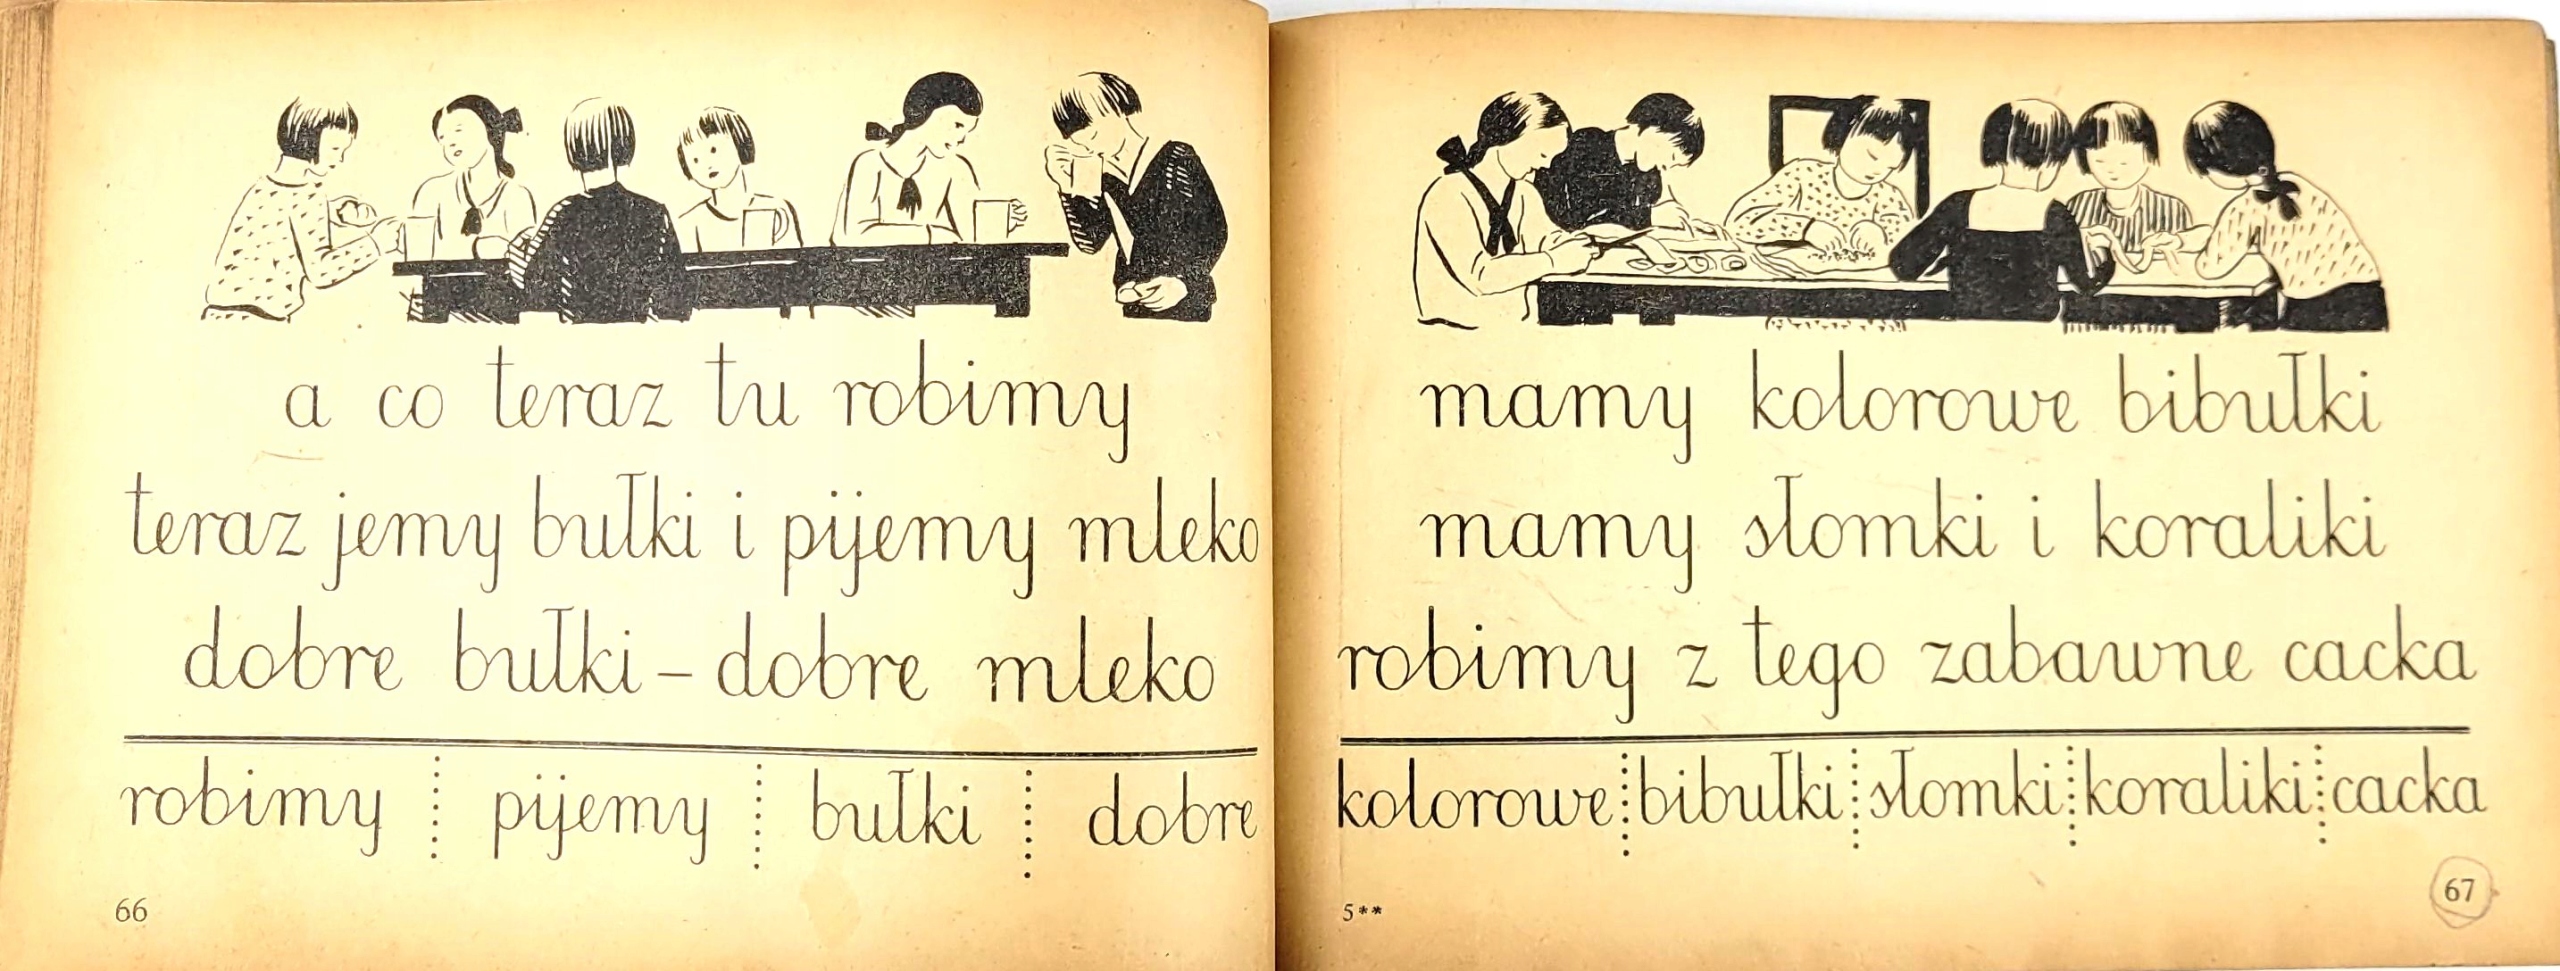 a co teraz tu robimy
teraz jemy bułki i pijemy mleko
dobre bułki – dobre mleko
robimy pijemy bułki dobre
66
mamy kolorowe bibułki
mamy słomki i koraliki
robimy z tego zabawne cacka
kolorowe bibułki słomki koraliki cacka
5**
67